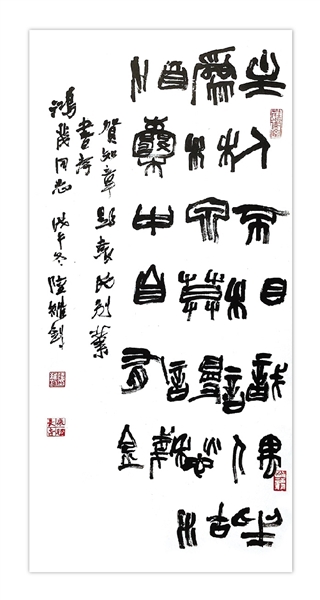 主人不相識偶坐
為林泉莫謾愁沽
酒囊中自有錢
賀知章題袁氏别業
書奉
鴻 同志 戊午冬 陸維釗